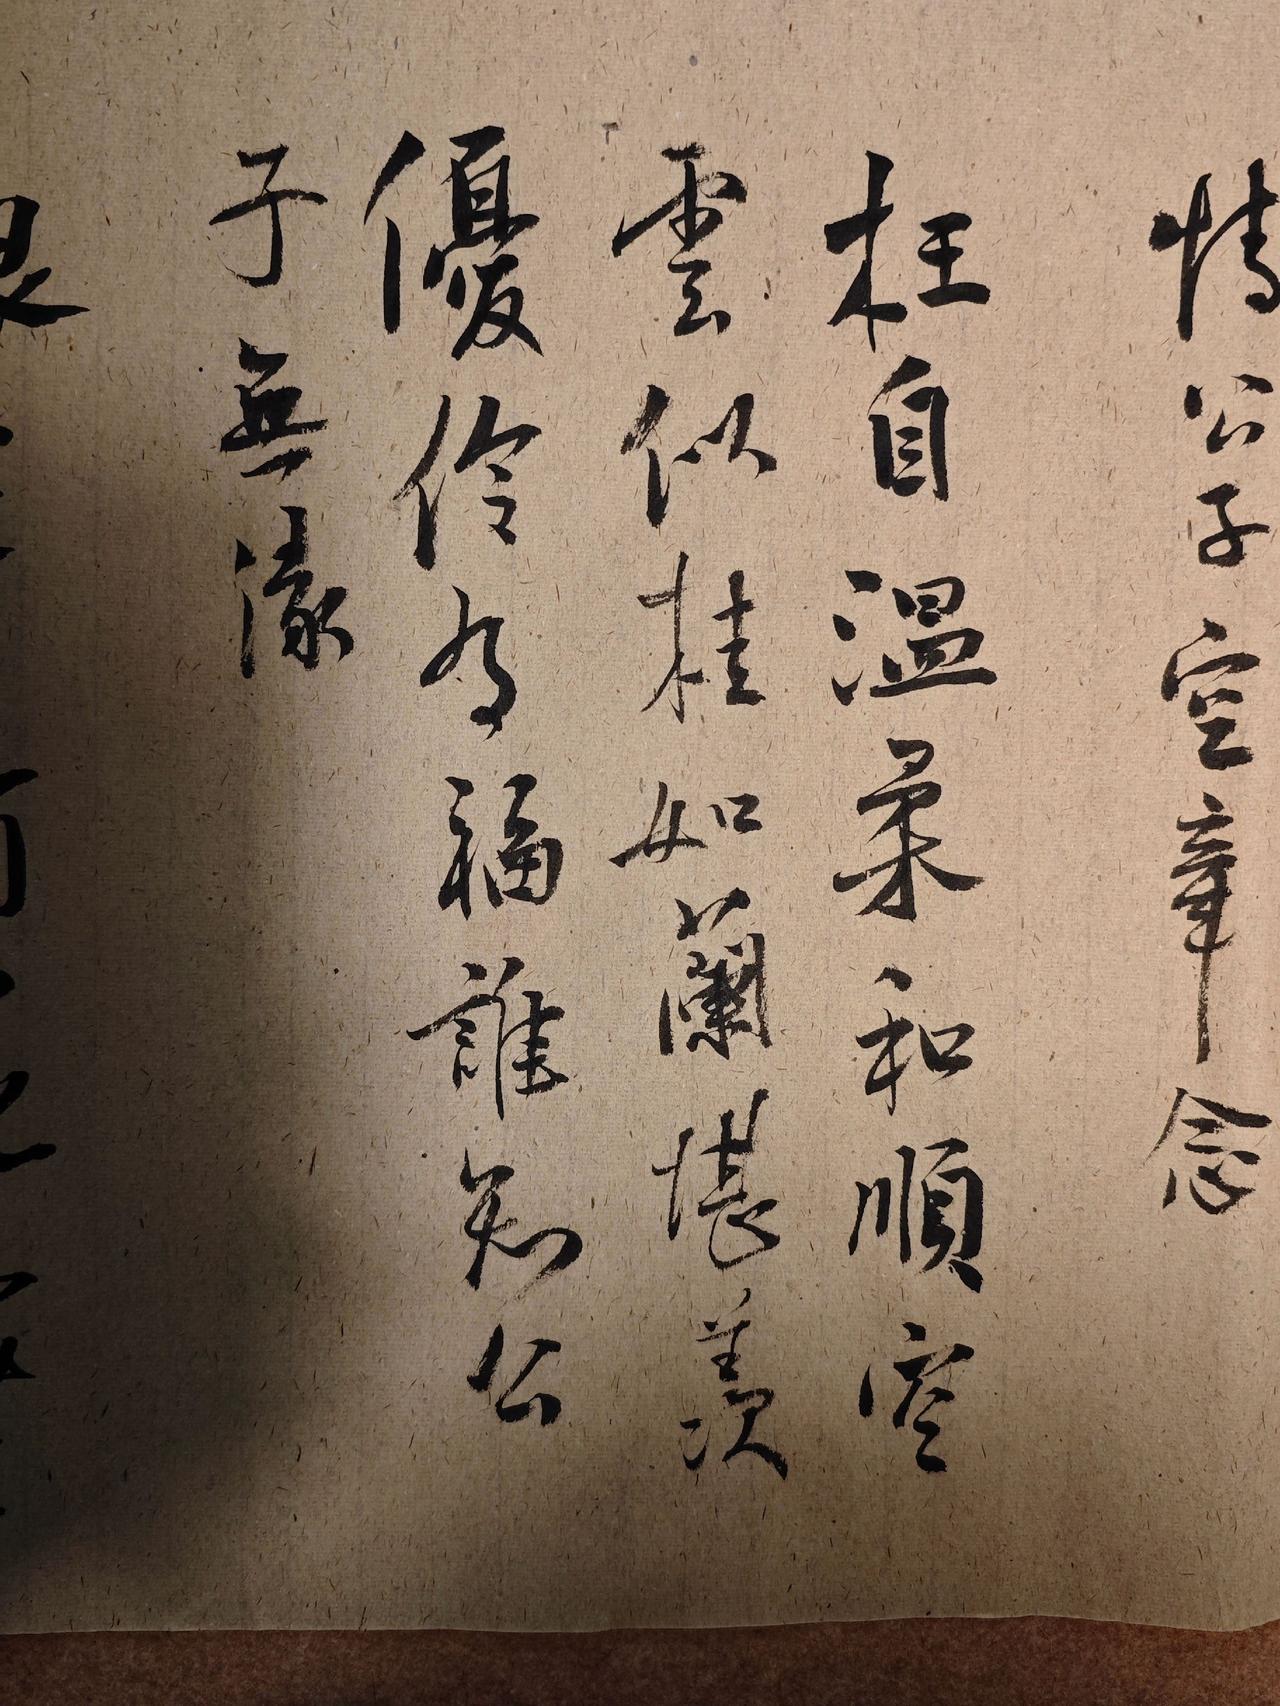 情公子空牽念
枉自溫柔和順空
雲似桂如蘭堪羨
優伶有福誰知公
子無緣